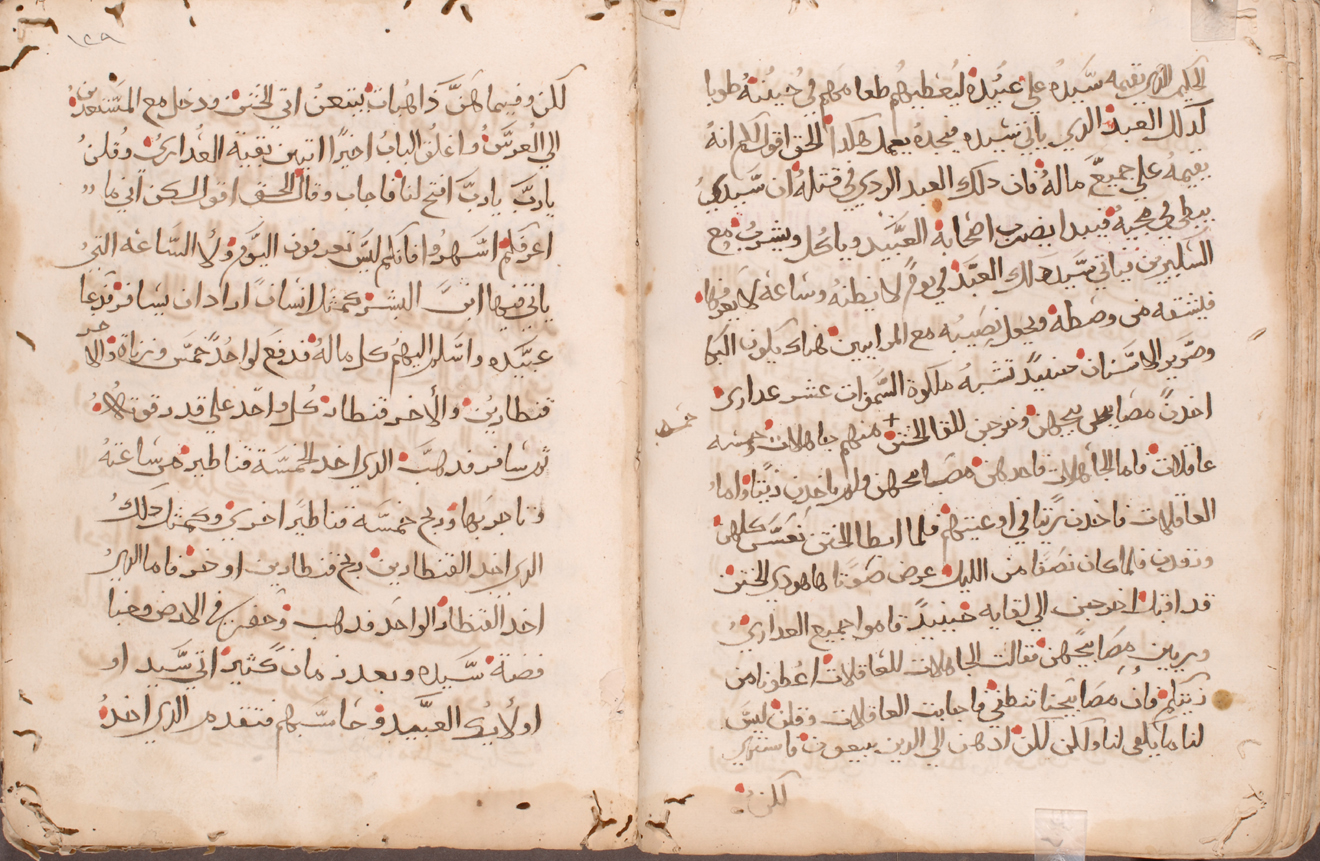 الحكيم الذي يقيمه سَّيده علي عَبيُدهُ ليُعُطيهُم طعامَهم في حُينهُ طوبا
لدلك العبد الدي ياتي سَّيده فيجدهُ يعمل هٰكدا الحق اقول لكم انهُ
يقيمهُ علي جميعَّ مالهُ فان دلك العبد الردي في قتلهُ ان سَّيدي
يبطي في مجيهُ فيبدا يضرب اصْحابهُ العبَّيد وياكُل ويشربُ مِع
السُكيرين فياتي سَّيد دلك العبَّد في يومً لا يظنهُ وسَاعه لا يعرفها
فيشقه من وسَطهُ ويجعل نِصَيبهُ مع المرايين هناك يكون البكا
وصَّرير الاسَّنان حينيدً تشبهُ ملكوة السَّموات عشر عداري
اخدنً مصَابيحهن وخرجن للقا الختن منهم جاهلات خمسه
خمسَه
عاقلات فاما الجَاهلات فاخدهن مصَابيحهن ولم ياخدن زيتًا واما
العاقلات فاخدن زيتا في اوعيتهم فلما ابطا الختن نعَسَّن كلهن
ونمون فلما كان نصَف من الليل عرض صَوتا هاهودي الختن
قد اقبل اخرجن الي لقايه حينيدً قاموا جميع العداري
وزين مصَابيحهن فقالت الجاهلات للعَاقلات اعُطونا من
زيتكم فان مصَابيحنا تنطفي فاجابت العاقلات وقلن ليسَّ
لنا ما يكفي لنا ولكن لكن ادهبن الي الدين يبيعون فاشتري
لكن
١٢٩
لكن وفيما هَنَّ دَاهبات يبتعنُ اتي الختن ودخل مع المسَّتعدين
الي العُرسَّ واغلق البابُ اخيرًا اتين بقية العُداري وقلنُ
ياربَّ ياربَّ افتح لنا فاجاب وقال الحق اقول لكن اني ما
اعرفكم اسَّهروا فانكم ليسَّ تعرفون اليوم ولا السَّاعه التي
ياتي فيها ابن البشر كمثل انسانً اراد ان يسَافر فدعا
عبيَّده واسَّلم اليهم كل مالهُ فدفع لواحدً خمسَ وزناة والاخر
قنطارين والاخر قنطار كُل واحدً علي قدر قوتهُ
ثم سَافر فدهبَّ الدي اخد الخمسَّة قناطير من سَاعتهُ
وتاجر بها وربح خمسَّة قناطيَر اخري وكمثل دلك
الدي اخد القنطارين ربح قنطارين اوخر فاما الدي
اخد القنطار الواحد فدهب وحفر في الارض وخبا
فضة سَّيده وبعد زمان كثيرً اتي سَّيد او
اولايك العبَّيد وحاسَّبهم فتقدم الدي اخد